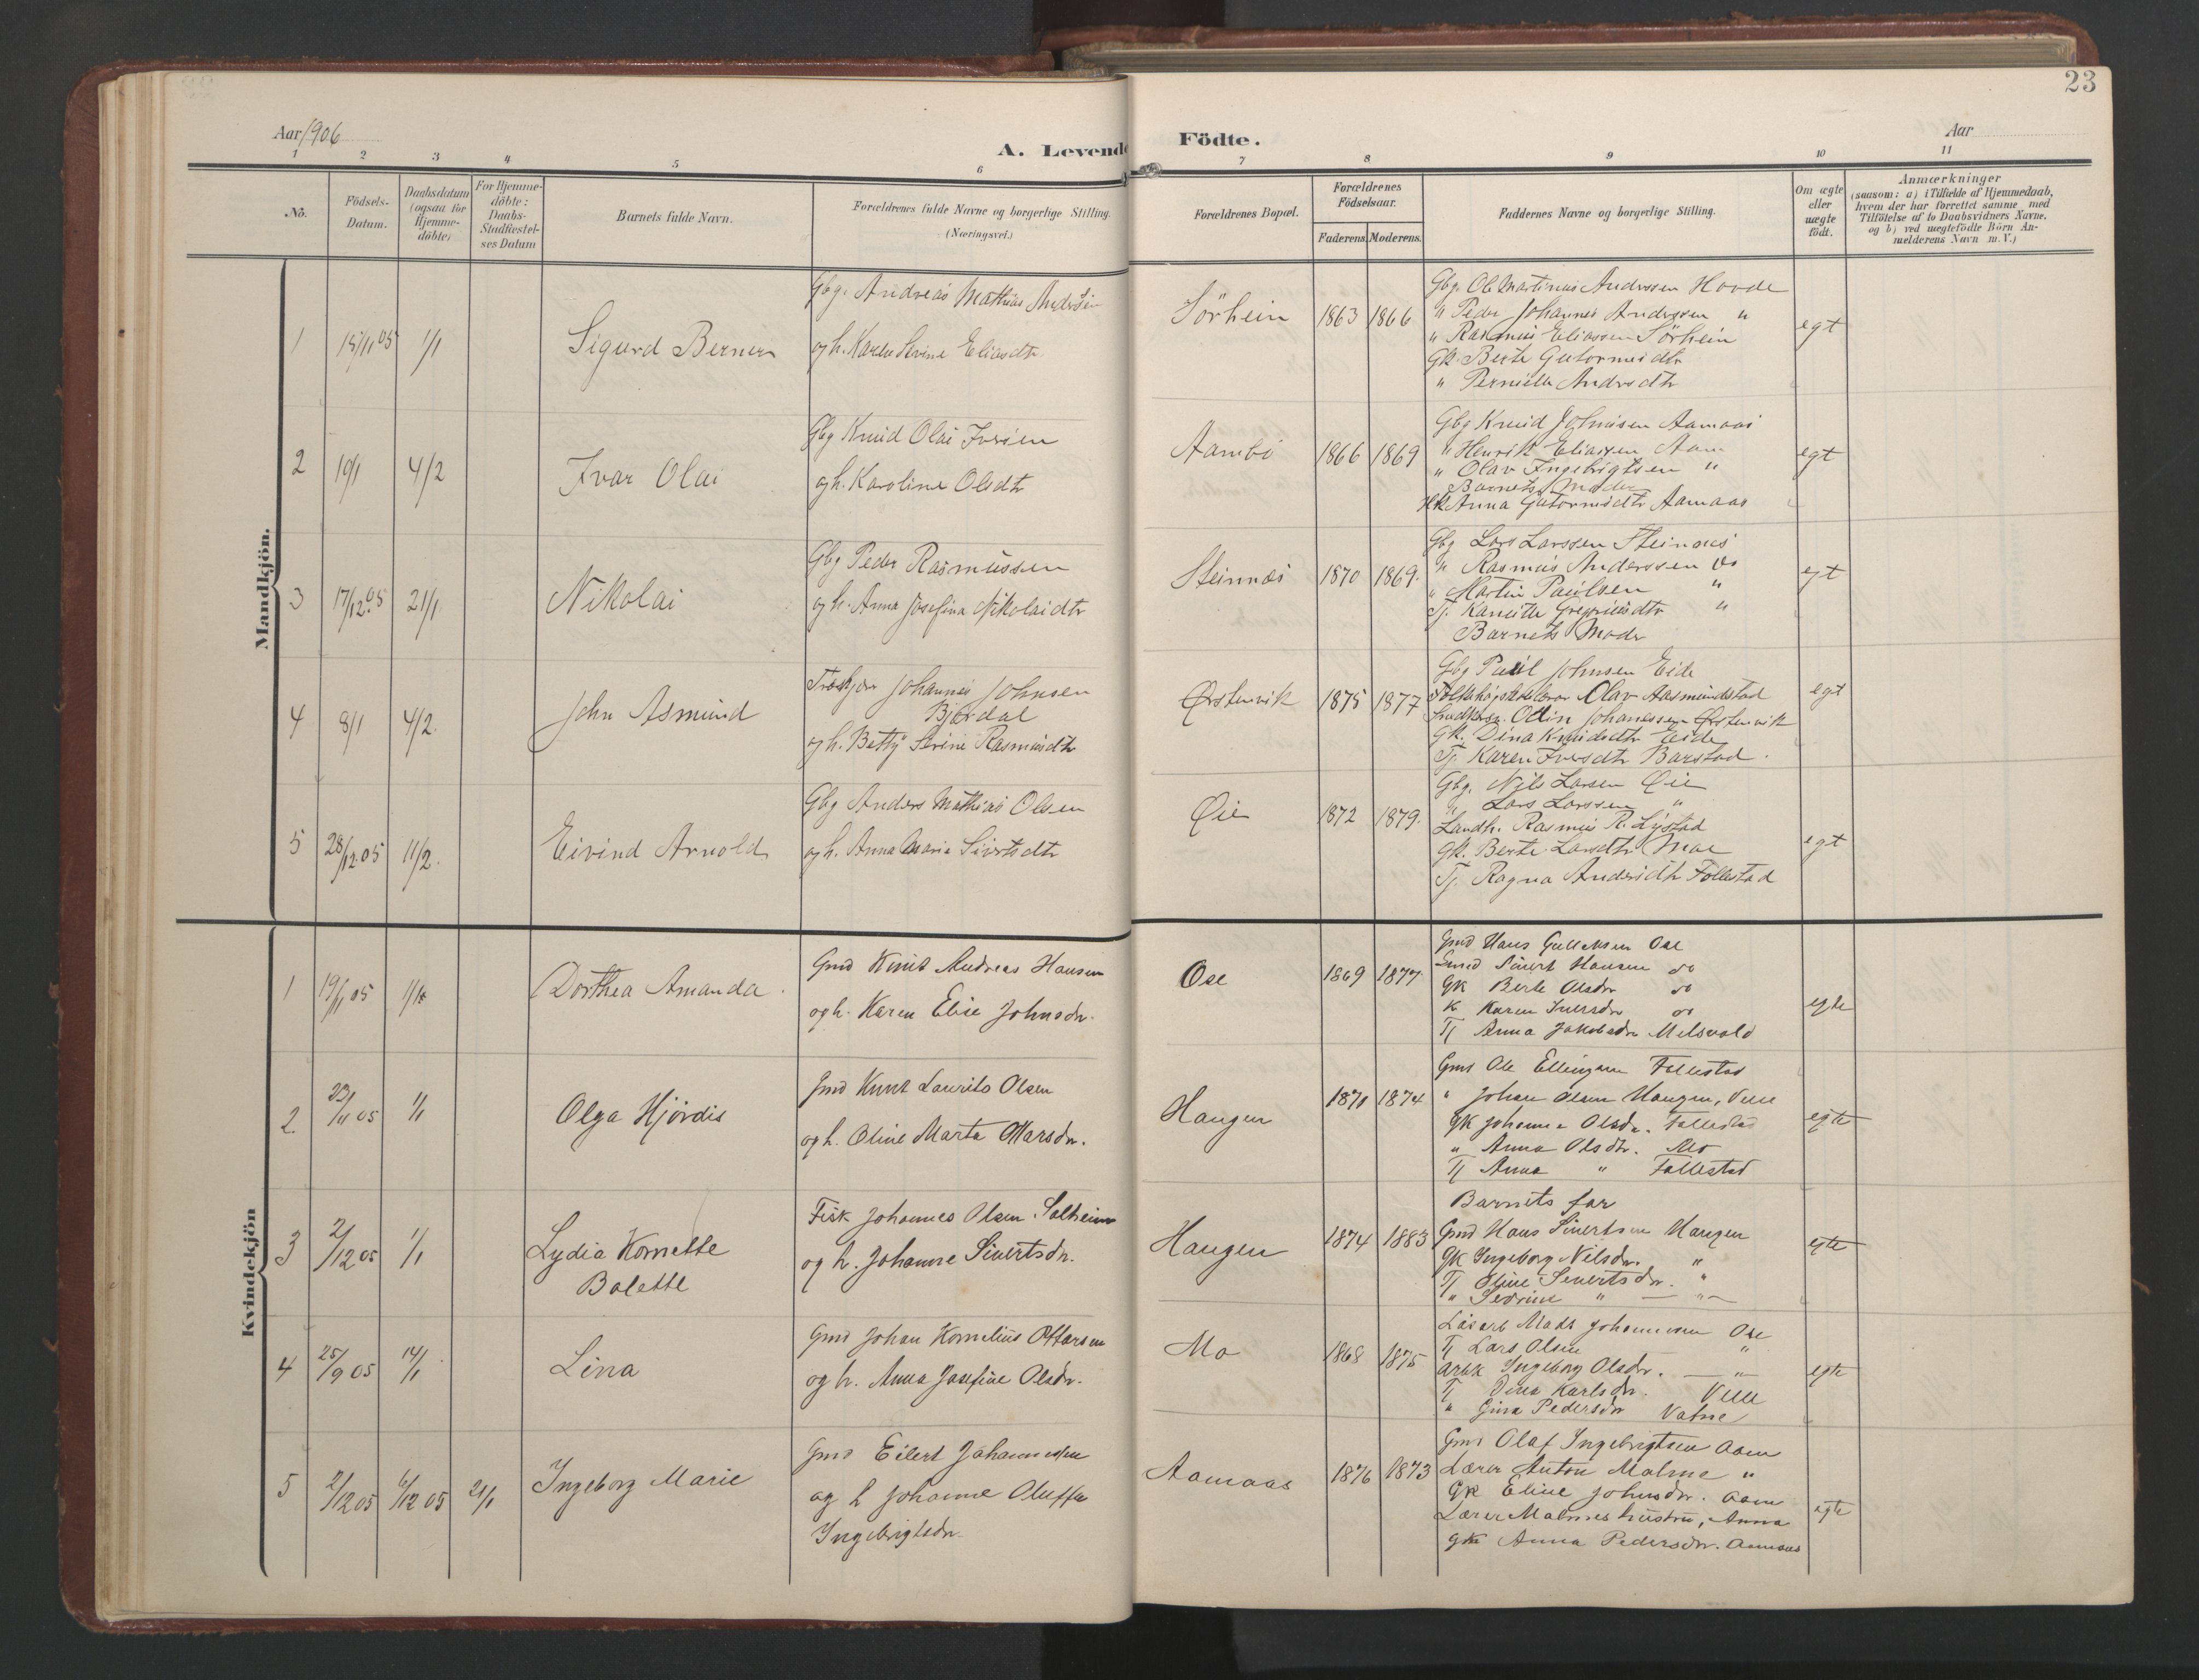 23
Aar 1906
A. Levende Födte.
Aar
1 2 3 4 5 6 7 8 9 10 11
No.
Födsels-
Datum.
Daabsdatum
(ogsaa for
Hjemme-
döbte)
For Hjemme-
döbte:
Daabs-
Stadfæstel-
ses Datum
Barnets fulde Navn.
Forældrenes fulde Navne og borgerlige Stilling.
(Næringsvei.)
Forældrenes Bopæl.
Forældrenes
Födselsaar.
Faderens. Moderens.
Faddernes Navne og borgerlige Stilling.
Om ægte
eller
uægte
födt.
Anmærkninger
(saasom: a) i Tilfælde af Hjemmedaab,
hvem der har forrettet samme med
Tilföielse af to Daabsvidners Navne,
og b) ved uægtefödte Börn An-
melderens Navn m.V.)
Mandkjön.
1
15/11 05
1/1
Sigurd Berner
Gbg. Andreas Mathias Andersen
og h. Karen Sevine Eliasdtr
Sörheim
1863
1866
Gbg. Ole Martinus Anderssen Hovde
" Peder Johannes Anderssen "
" Rasmus Eliassen Sörheim
Gk. Berte Guttormsdtr
" Pernille Andrsdtr
egt
2
19/1
4/2
Ivar Olai
Gbg Knud Olai Iversen
og h. Karoline Olsdtr
Aambö
1866
1869
Gbg Knud Johnsen Aamaas
" Henrik Eliassen Aam
" Olav Ingebrigtsen "
Barnets Moder
Hk Anna Guttormsdtr Aamaas
egt
3
17/12 05
21/1
Nikolai
Gbg Peder Rasmussen
og h. Anna Josefina Nikolaidtr
Steinnes
1870
1869.
Gbg Lars Larssen Steinnes
" Rasmus Anderssen do
" Martin Paulsen "
Tj. Kamilla Gregoriusdtr "
Barnets Moder
egt
4
8/1
4/2.
John Asmund
Johannes Johnsen
Bjørdal
og h. Betty Serine Rasmusdtr
Ørstenvik
1875
1877
Gbg Paul Johnsen Eide
Olav Aasmundstad
Odin Johanessen Ørstenvik
Gk. Dina Knudsdtr Eide
Tj. Karen Iversdtr Barstad.
egt
5
28/12 05
11/2.
Eivind Arnold
Gbg Anders Mathias Olsen
og h. Anna Marie Sivertsdtr
Øie
1872
1879.
Gbg. Nils Larsen Øie
" Lars Larssen "
Landh. Rasmus R. Lystad
Gk. Berte Larsdtr Moe
Tj. Ragna Andersdtr Follestad
egt
Kvindekjön
1
19/11 05
1/1
Dorthea Amanda
Gmd Knut Andreas Hansen
og h. Karen Elise Johnsdr.
Ose
1869
1877
Gmd Hans Gulleksen Ose
Sivert Hansen do
GK Berte Olsdr do
K Karen Iversdr do
Tj Anna Jakobsdr Melsvold
egte
2
23/11 05
1/1
Olga Hjördis
Gmd Knut Laurits Olsen
og h. Oline Marta Ottarsdr.
Haugen
1871
1874
Gmd Ole Ellingsen Follestad
" Johan Olsen Haugen, Velle
GK Johanne Olsdr. Follestad
" Anna Olsdtr. Mo
Tj Anna " Follestad
egte
3
2/12 05
1/1
Lydia Kornette
Bolette
Fisk Johannes Olsen Solheim
og h. Johanne Sivertsdr.
Haugen
1874
1883
Barnets far
Gmd Hans Sivertsen Haugen
GK Ingeborg Nilsdr. "
Tj Oline Sivertsdr. "
" Sedrine " — " —
egte
4
25/9 05
14/1
Lina
Gmd Johan Kornelius Ottarsen
og h. Anna Josefine Olsdr.
Mo
1868
1875
Mads Johannesen Ose
Tj Lars Olsen "
Arbk Ingeborg Olsdr. — " —
Tj Dina Karlsdr. Velle
" Gina Pedersdr Vatne
egte
5
2/12 05
6/12 05
21/1
Ingeborg Marie
Gmd Eilert Johannessen
og h Johanne Oluffa
Ingebrigtsdr.
Aamaas
1876
1873
Gmd Olaf Ingebrigtsen Aam
Lærer Anton Malme "
GK Eline Johnsdr. Aam
Lærer Malmes hustru, Anna
gk Anna Pedersdr. Aamaas
egte